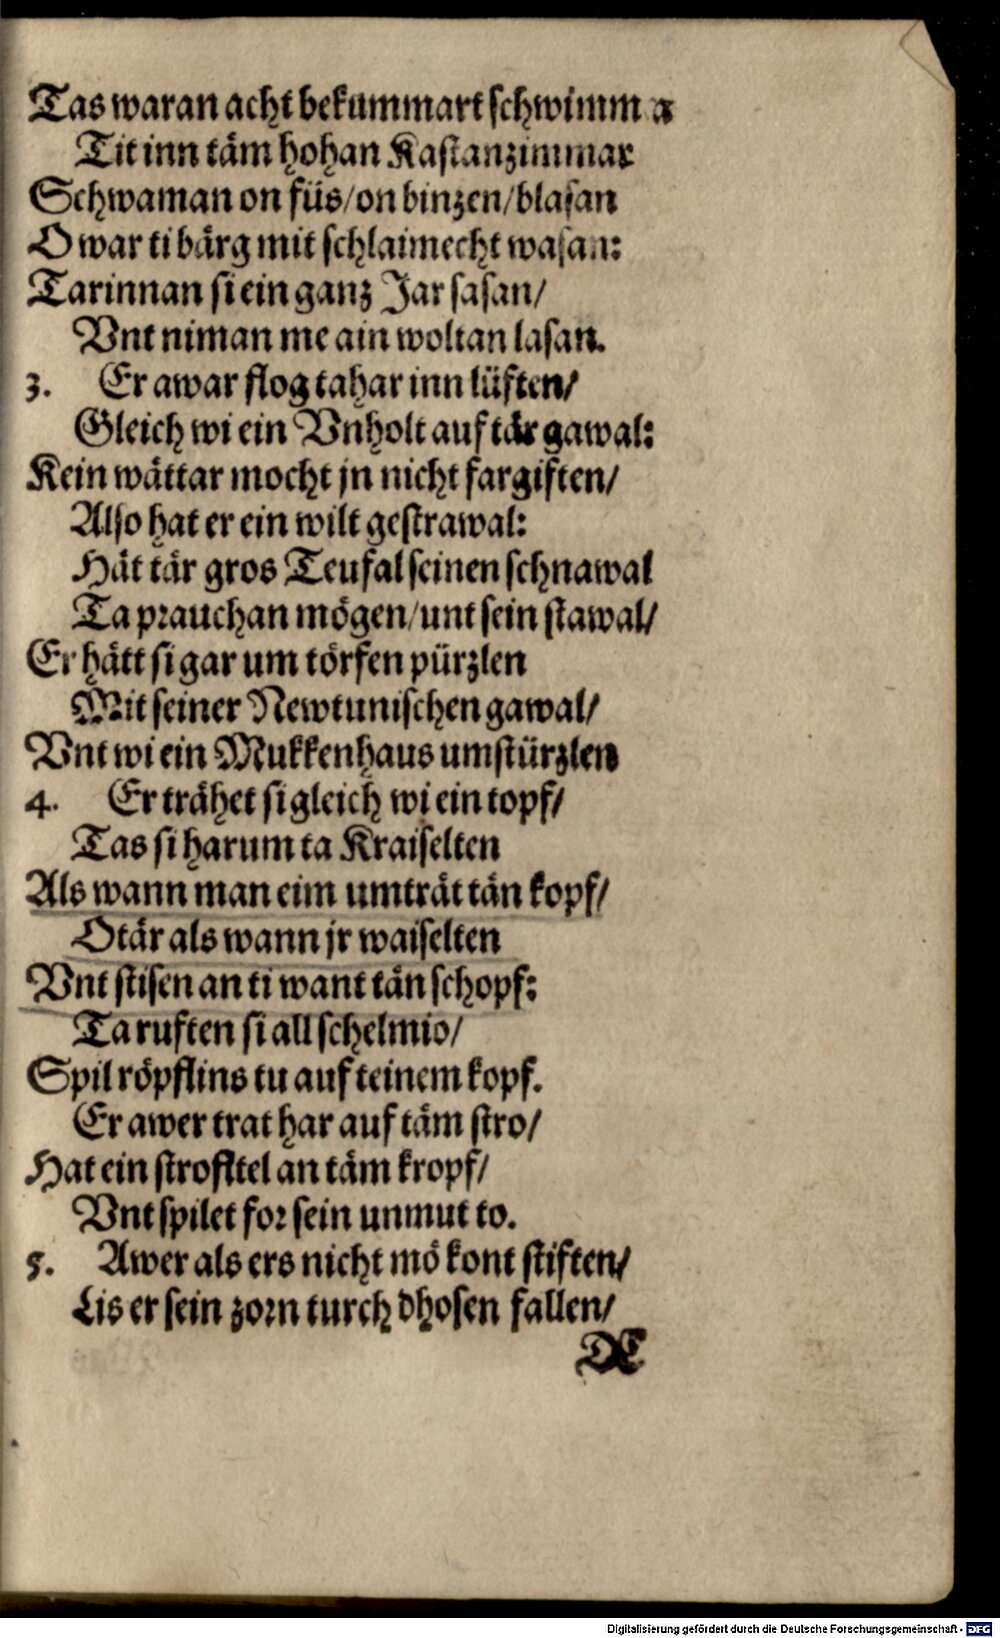 Tas waran acht bekummart schwimm a
Tit inn täm hohan Kastanzimmar
Schwaman on füs/on binzen/blasan
O war ti bärg mit schlaimecht wasan:
Tarinnan si ein ganz Jar sasan/
Vnt niman me ain woltan lasan.
3. Er awar flog tahar inn lüften/
Gleich wi ein Vnholt auf tär gawal:
Kein wättar mocht jn nicht fargiften/
Also hat er ein wilt gestrawal:
Hät tär gros Teufal seinen schnawal
Ta prauchan mögen/unt sein stawal/
Er hätt si gar um törfen pürzlen
Mit seiner Newtunischen gawal/
Vnt wi ein Mukkenhaus umstürzlen
4. Er trähet si gleich wi ein topf/
Tas si harum ta Kraiselten
Als wann man eim umträt tän kopf/
Otär als wann jr waiselten
Vnt stisen an ti want tän schopf:
Ta ruften si all schelmio/
Spil röpflins tu auf teinem kopf.
Er awer trat har auf täm stro/
Hat ein strofltel an täm kropf/
Vnt spilet for sein unmut to.
5. Awer als ers nicht mö kont stiften/
Lis er sein zorn turch dhosen fallen/
Digitalisierung gefördert durch die Deutsche Forschungsgemeinschaft - DFG